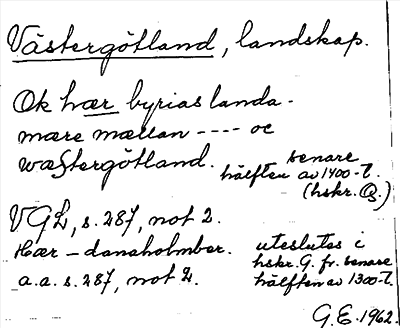 Västergötland, landskap.
Ok hær byrias landa-
mære mællan ---- oc
wæstergötland. senare
hälften av 1400-t.
(hskr. Q.)
VGL, s. 287, not 2.
Hær – danaholmber. uteslutes i
hskr. G. fr. senare
a.a. s. 287, not 2. hälften av 1300-t.
G.E. 1962.